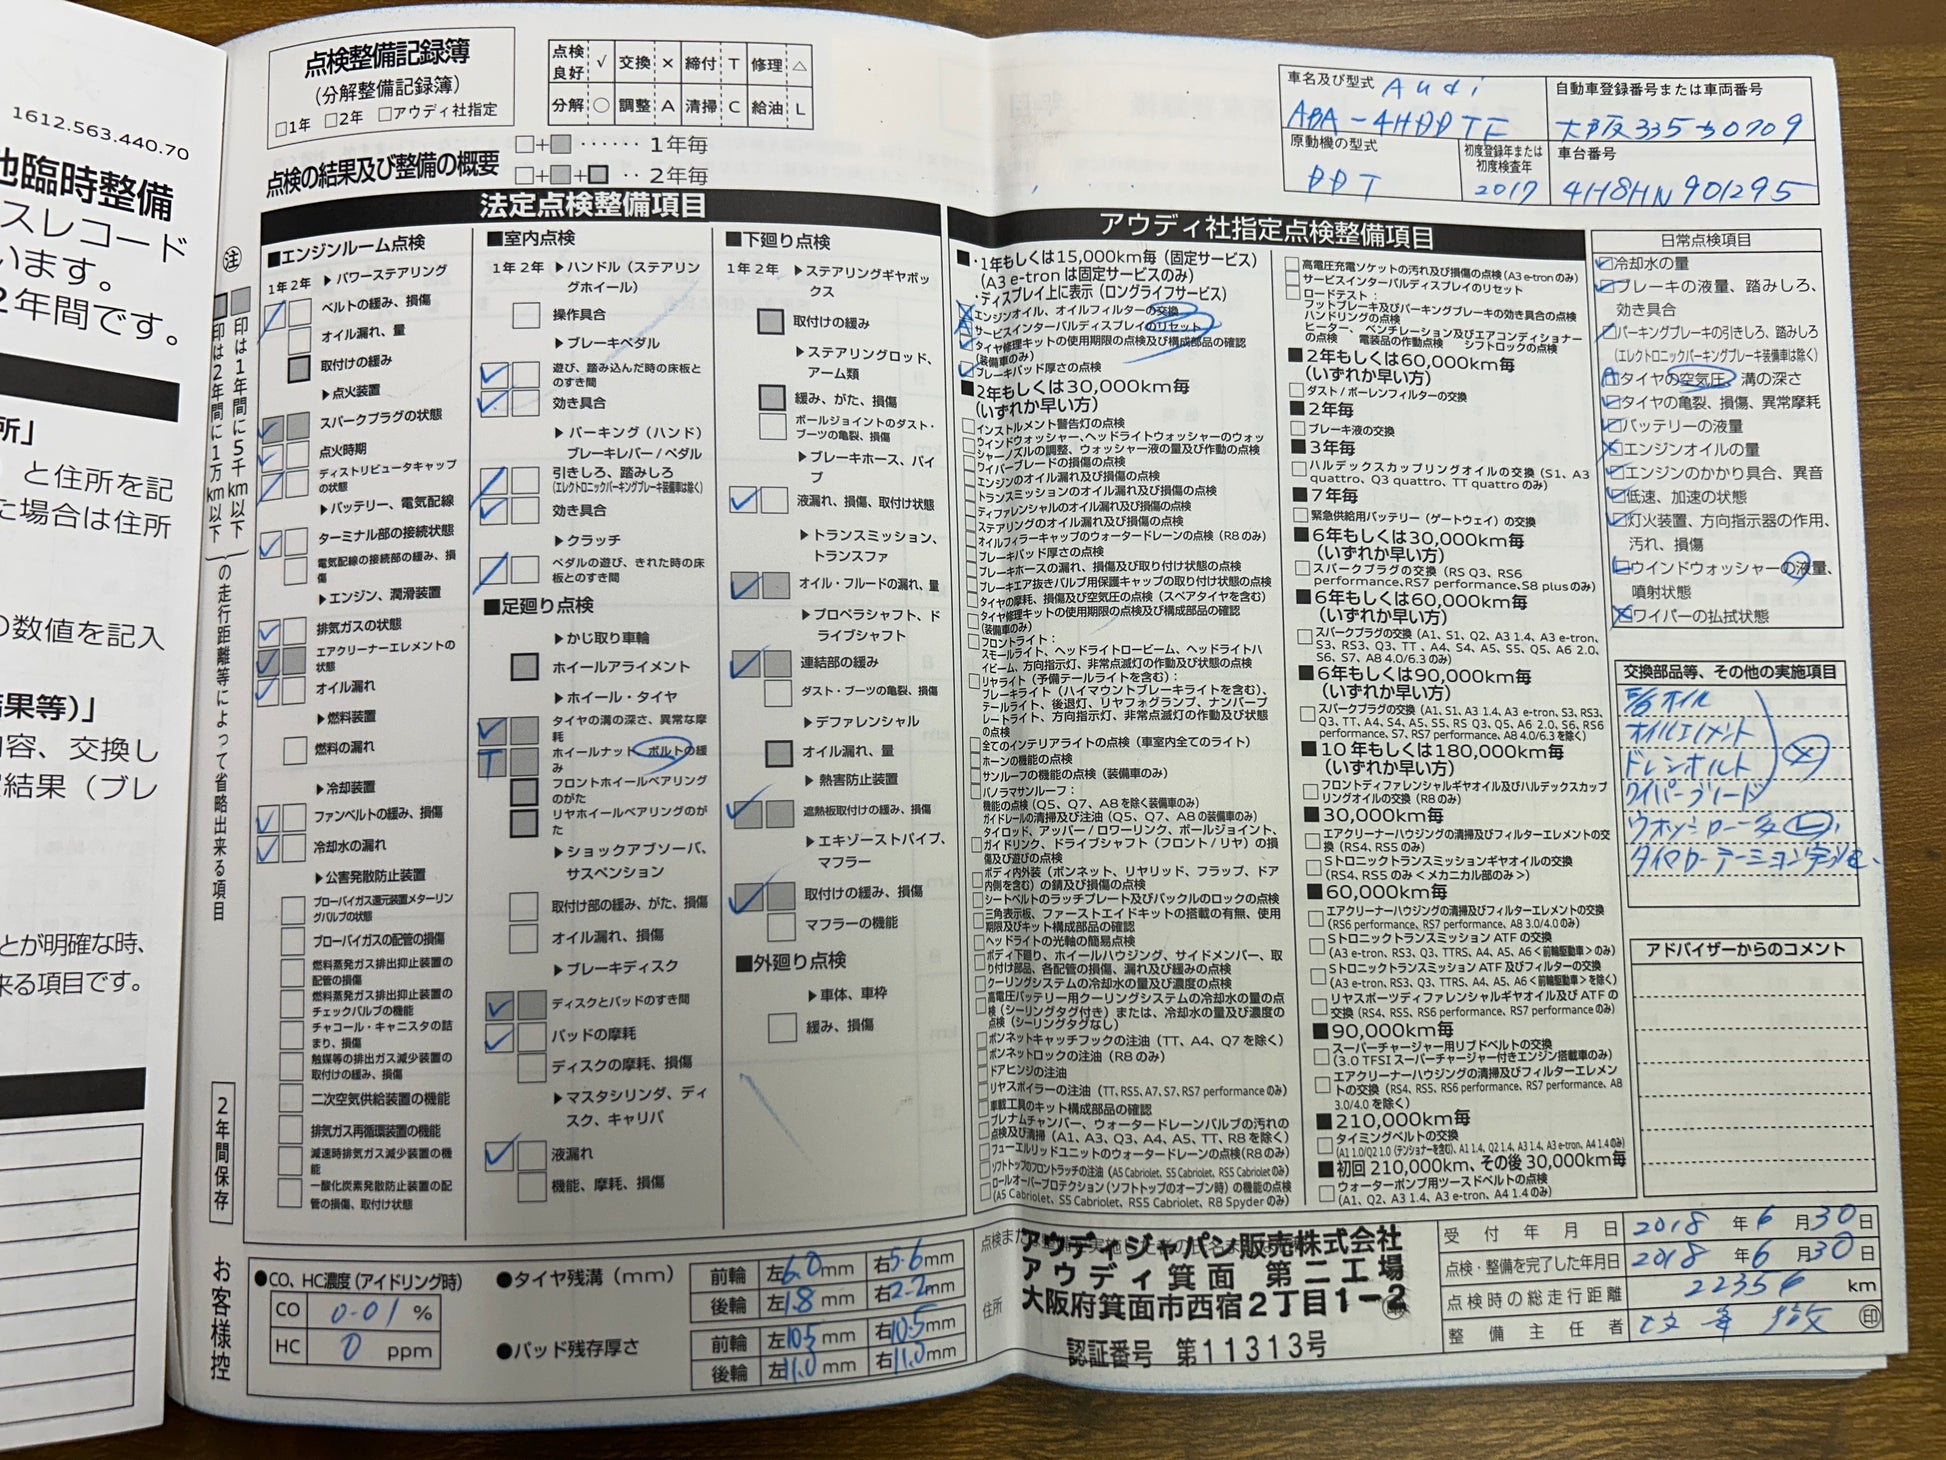 1612.563.440.70
也臨時整備
スレコード
います。
2年間です。
所」
と住所を記
た場合は住所
の数値を記入
結果等)」
内容、交換し
定結果（ブレ
とが明確な時、
来る項目です。
点検整備記録簿
(分解整備記録簿)
□1年 □2年 □アウディ社指定
点検良好 √ 交換 × 締付 T 修理 △
分解 ○ 調整 A 清掃 C 給油 L
点検の結果及び整備の概要
□+■ ‥‥‥ 1年毎
□+■+■ ‥ 2年毎
車名及び型式 Audi
ABA-4HDDTF
自動車登録番号または車両番号
原動機の型式
DDT
初度登録年または初度検査年
2017
車台番号
4H8HN901295
注
■印は1年間に5千km以下
■印は2年間に1万km以下
の走行距離等によって省略出来る項目
2年間保存
お客様控
法定点検整備項目
■エンジンルーム点検
1年2年 ▶パワーステアリング
ベルトの緩み、損傷
オイル漏れ、量
取付けの緩み
▶点火装置
スパークプラグの状態
点火時期
ディストリビュータキャップの状態
▶バッテリー、電気配線
ターミナル部の接続状態
電気配線の接続部の緩み、損傷
▶エンジン、潤滑装置
排気ガスの状態
エアクリーナーエレメントの状態
オイル漏れ
▶燃料装置
燃料の漏れ
▶冷却装置
ファンベルトの緩み、損傷
冷却水の漏れ
▶公害発散防止装置
ブローバイガス還元装置メターリングバルブの状態
ブローバイガスの配管の損傷
燃料蒸発ガス排出抑止装置の配管の損傷
燃料蒸発ガス排出抑止装置のチェックバルブの機能
チャコール・キャニスタの詰まり、損傷
触媒等の排出ガス減少装置の取付けの緩み、損傷
二次空気供給装置の機能
排気ガス再循環装置の機能
減速時排気ガス減少装置の機能
一酸化炭素発散防止装置の配管の損傷、取付け状態
■室内点検
1年2年 ▶ハンドル（ステアリングホイール）
操作具合
▶ブレーキペダル
遊び、踏み込んだ時の床板とのすき間
効き具合
▶パーキング（ハンド）ブレーキレバー / ペダル
引きしろ、踏みしろ
(エレクトロニックパーキングブレーキ装備車は除く)
効き具合
▶クラッチ
ペダルの遊び、きれた時の床板とのすき間
■足廻り点検
▶かじ取り車輪
ホイールアライメント
▶ホイール・タイヤ
タイヤの溝の深さ、異常な摩耗
T ホイールナット、ボルトの緩み
フロントホイールベアリングのがた
リヤホイールベアリングのがた
▶ショックアブソーバ、サスペンション
取付け部の緩み、がた、損傷
オイル漏れ、損傷
▶ブレーキディスク
ディスクとパッドのすき間
パッドの摩耗
ディスクの摩耗、損傷
▶マスタシリンダ、ディスク、キャリパ
液漏れ
機能、摩耗、損傷
■下廻り点検
1年2年 ▶ステアリングギヤボックス
取付けの緩み
▶ステアリングロッド、アーム類
緩み、がた、損傷
ボールジョイントのダスト・ブーツの亀裂、損傷
▶ブレーキホース、パイプ
液漏れ、損傷、取付け状態
▶トランスミッション、トランスファ
オイル・フルードの漏れ、量
▶プロペラシャフト、ドライブシャフト
連結部の緩み
ダスト・ブーツの亀裂、損傷
▶デファレンシャル
オイル漏れ、量
▶熱害防止装置
遮熱板取付けの緩み、損傷
▶エキゾーストパイプ、マフラー
取付けの緩み、損傷
マフラーの機能
■外廻り点検
▶車体、車枠
緩み、損傷
アウディ社指定点検整備項目
■・1年もしくは15,000km毎（固定サービス）
(A3 e-tron は固定サービスのみ)
・ディスプレイ上に表示（ロングライフサービス）
エンジンオイル、オイルフィルターの交換
サービスインターバルディスプレイのリセット
タイヤ修理キットの使用期限の点検及び構成部品の確認
(装備車のみ)
ブレーキパッド厚さの点検
■2年もしくは30,000km毎
(いずれか早い方)
インストルメント警告灯の点検
ウインドウォッシャー、ヘッドライトウォッシャーのウォッシャーノズルの調整、ウォッシャー液の量及び作動の点検
ワイパーブレードの損傷の点検
エンジンのオイル漏れ及び損傷の点検
トランスミッションのオイル漏れ及び損傷の点検
ディファレンシャルのオイル漏れ及び損傷の点検
ステアリングのオイル漏れ及び損傷の点検
オイルフィラーキャップのウォータードレーンの点検（R8のみ）
ブレーキパッド厚さの点検
ブレーキホースの漏れ、損傷及び取り付け状態の点検
ブレーキエア抜きバルブ用保護キャップの取り付け状態の点検
タイヤの摩耗、損傷及び空気圧の点検（スペアタイヤを含む）
タイヤ修理キットの使用期限の点検及び構成部品の確認
(装備車のみ)
フロントライト：
スモールライト、ヘッドライトロービーム、ヘッドライトハイビーム、方向指示灯、非常点滅灯の作動及び状態の点検
リヤライト（予備テールライトを含む）：
ブレーキライト（ハイマウントブレーキライトを含む）、テールライト、後退灯、リヤフォグランプ、ナンバープレートライト、方向指示灯、非常点滅灯の作動及び状態の点検
全てのインテリアライトの点検（車室内全てのライト）
ホーンの機能の点検
サンルーフの機能の点検（装備車のみ）
パノラマサンルーフ：
機能の点検（Q5、Q7、A8を除く装備車のみ）
ガイドレールの清掃及び注油（Q5、Q7、A8の装備車のみ）
タイロッド、アッパー / ロワーリンク、ボールジョイント、ガイドリンク、ドライブシャフト（フロント / リヤ）の損傷及び遊びの点検
ボディ内外装（ボンネット、リヤリッド、フラップ、ドア内側を含む）の錆及び損傷の点検
シートベルトのラッチプレート及びバックルのロックの点検
三角表示板、ファーストエイドキットの搭載の有無、使用期限及びキット構成部品の確認
ヘッドライトの光軸の簡易点検
ボディ下廻り、ホイールハウジング、サイドメンバー、取り付け部品、各配管の損傷、漏れ及び緩みの点検
クーリングシステムの冷却水の量及び濃度の点検
高電圧バッテリー用クーリングシステムの冷却水の量の点検（シーリングタグ付き）または、冷却水の量及び濃度の点検（シーリングタグなし）
ボンネットキャッチフックの注油（TT、A4、Q7を除く）
ボンネットロックの注油（R8のみ）
ドアヒンジの注油
リヤスポイラーの注油（TT、RS5、A7、S7、RS7 performanceのみ）
車載工具のキット構成部品の確認
プレナムチャンバー、ウォータードレーンバルブの汚れの点検及び清掃（A1、A3、Q3、A4、A5、TT、R8を除く）
フューエルリッドユニットのウォータードレーンの点検(R8のみ)
ソフトトップのフロントラッチの注油（A5 Cabriolet、S5 Cabriolet、RS5 Cabrioletのみ）
ロールオーバープロテクション（ソフトトップのオープン時）の機能の点検
(A5 Cabriolet、S5 Cabriolet、RS5 Cabriolet、R8 Spyderのみ)
高電圧充電ソケットの汚れ及び損傷の点検（A3 e-tronのみ）
サービスインターバルディスプレイのリセット
ロードテスト：
フットブレーキ及びパーキングブレーキの効き具合の点検
ハンドリングの点検
ヒーター、ベンチレーション及びエアコンディショナーの点検 電装品の作動点検 シフトロックの点検
■2年もしくは60,000km毎
(いずれか早い方)
ダスト / ポーレンフィルターの交換
■2年毎
ブレーキ液の交換
■3年毎
ハルデックスカップリングオイルの交換（S1、A3 quattro、Q3 quattro、TT quattroのみ）
■7年毎
緊急供給用バッテリー（ゲートウェイ）の交換
■6年もしくは30,000km毎
(いずれか早い方)
スパークプラグの交換（RS Q3、RS6 performance、RS7 performance、S8 plusのみ）
■6年もしくは60,000km毎
(いずれか早い方)
スパークプラグの交換（A1、S1、Q2、A3 1.4、A3 e-tron、S3、RS3、Q3、TT、A4、S4、A5、S5、Q5、A6 2.0、S6、S7、A8 4.0/6.3のみ）
■6年もしくは90,000km毎
(いずれか早い方)
スパークプラグの交換（A1、S1、A3 1.4、A3 e-tron、S3、RS3、Q3、TT、A4、S4、A5、S5、RS Q3、Q5、A6 2.0、S6、RS6 performance、S7、RS7 performance、A8 4.0/6.3を除く）
■10年もしくは180,000km毎
(いずれか早い方)
フロントディファレンシャルギヤオイル及びハルデックスカップリングオイルの交換（R8のみ）
■30,000km毎
エアクリーナーハウジングの清掃及びフィルターエレメントの交換（RS4、RS5のみ）
Sトロニックトランスミッションギヤオイルの交換
(RS4、RS5のみ＜メカニカル部のみ＞)
■60,000km毎
エアクリーナーハウジングの清掃及びフィルターエレメントの交換
(RS6 performance、RS7 performance、A8 3.0/4.0のみ)
Sトロニックトランスミッション ATF の交換
(A3 e-tron、RS3、Q3、TTRS、A4、A5、A6＜前輪駆動車＞のみ)
Sトロニックトランスミッション ATF 及びフィルターの交換
(A3 e-tron、RS3、Q3、TTRS、A4、A5、A6＜前輪駆動車＞を除く)
リヤスポーツディファレンシャルギヤオイル及び ATF の交換（RS4、RS5、RS6 performance、RS7 performanceのみ）
■90,000km毎
スーパーチャージャー用リブドベルトの交換
(3.0 TFSI スーパーチャージャー付きエンジン搭載車のみ)
エアクリーナーハウジングの清掃及びフィルターエレメントの交換（RS4、RS5、RS6 performance、RS7 performance、A8 3.0/4.0を除く）
■210,000km毎
タイミングベルトの交換
(A1 1.0/Q2 1.0 (テンショナーを含む)、A1 1.4、Q2 1.4、A3 1.4、A3 e-tron、A4 1.4のみ)
■初回 210,000km、その後 30,000km毎
ウォーターポンプ用ツースドベルトの点検
(A1、Q2、A3 1.4、A3 e-tron、A4 1.4のみ)
日常点検項目
冷却水の量
ブレーキの液量、踏みしろ、効き具合
パーキングブレーキの引きしろ、踏みしろ
(エレクトロニックパーキングブレーキ装備車は除く)
タイヤの空気圧、溝の深さ
タイヤの亀裂、損傷、異常摩耗
バッテリーの液量
エンジンオイルの量
エンジンのかかり具合、異音
低速、加速の状態
灯火装置、方向指示器の作用、汚れ、損傷
ウインドウォッシャーの液量、噴射状態
ワイパーの払拭状態
交換部品等、その他の実施項目
E/gオイル
オイルエレメント
ドレンボルト
ワイパーブレード
アドバイザーからのコメント
●CO、HC濃度（アイドリング時）
CO 0.01 %
HC 0 ppm
●タイヤ残溝（mm）
前輪 左6.0mm 右5.6mm
後輪 左1.8mm 右2.2mm
●パッド残存厚さ
前輪 左10.5mm 右10.5mm
後輪 左11.0mm 右11.0mm
アウディジャパン販売株式会社
アウディ箕面 第二工場
住所 大阪府箕面市西宿2丁目1-2
認証番号 第11313号
受付年月日 2018年6月30日
点検・整備を完了した年月日 2018年6月30日
点検時の総走行距離 22356 km
整備主任者 印